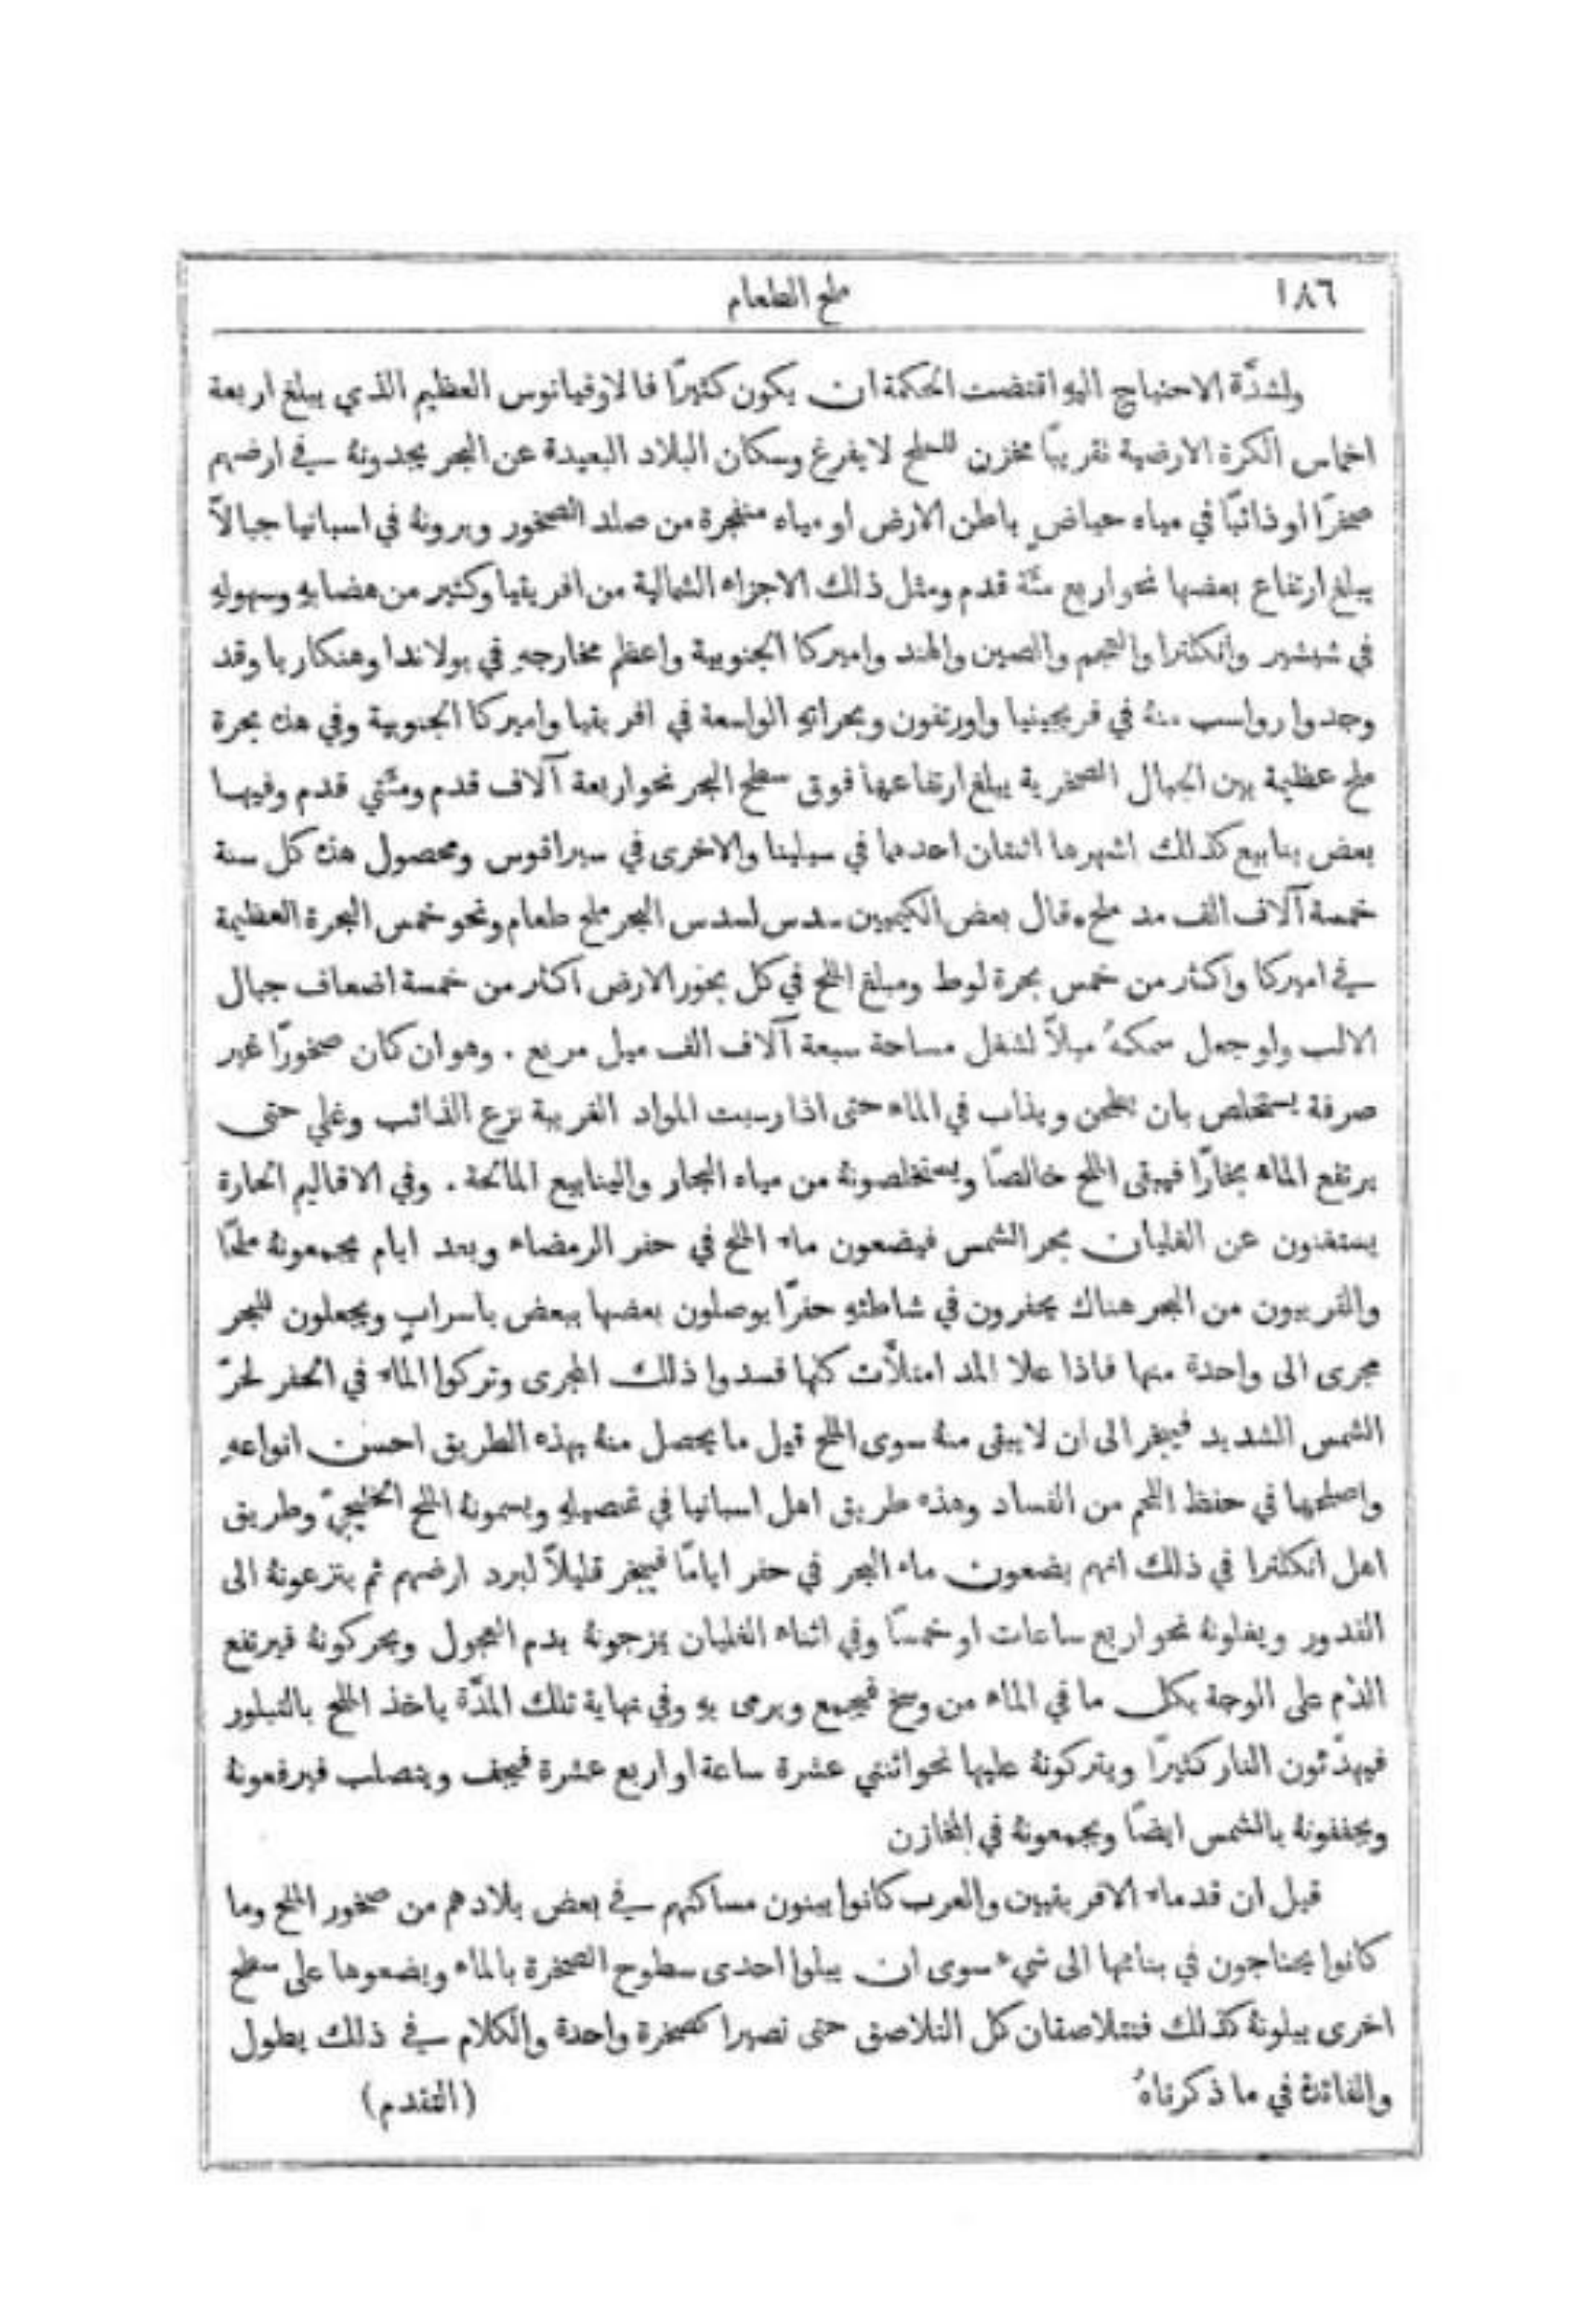 ١٨٦
ملح الطعام
ولشدَّة الاحتياج اليهِ اقتضت الحكمة ان يكون كثيرًا فالاوقيانوس العظيم الذي يبلغ اربعة
اخماس الكرة الارضية تقريبًا مخزن للملح لا يفرغ وسكان البلاد البعيدة عن البحر يجدونهُ في ارضهم
صخرًا او ذائبًا في مياه حياضٍ باطن الارض او مياه منفجرة من صلد الصخور ويرونهُ في اسبانيا جبالاً
يبلغ ارتفاع بعضها نحو اربع مئَة قدم ومثل ذلك الاجزاء الشمالية من افريقيا وكثير من هضابهِ وسهولهِ
في شيشير وانكلترا والعجم والصين والهند واميركا الجنوبية واعظم مخارجهِ في بولاندا وهنكاريا وقد
وجدوا رواسب منهُ في فرجينيا واورتفون وبحراتهِ الواسعة في افريقيا واميركا الجنوبية وفي هذه بحرة
ملح عظيمة بين الجبال الصخرية يبلغ ارتفاعها فوق سطح البحر نحو اربعة آلاف قدم ومئَتي قدم وفيها
بعض ينابيع كذلك اشهرها اثنتان احدهما في سيلينا والاخرى في سيراقوس ومحصول هذه كل سنة
خمسة آلاف الف مد ملح. قال بعض الكيميين سدس لسدس البحر ملح طعام ونحو خمس البحرة العظيمة
في اميركا واكثر من خمس بحرة لوط ومبلغ الملح في كل بحور الارض اكثر من خمسة اضعاف جبال
الالب ولو جعل سمكهُ ميلاً لشغل مساحة سبعة آلاف الف ميل مربع . وهو ان كان صخورًا غير
صرفة يستخلص بان يطحن ويذاب في الماء حتى اذا رسبت المواد الغريبة نزع الذائب وغلي حتى
يرتفع الماء بخارًا فيبقى الملح خالصًا ويستخلصونهُ من مياه البحار والينابيع المالحة . وفي الاقاليم الحارة
يستغنون عن الغليان بحر الشمس فيضعون ماء الملح في حفر الرمضاء وبعد ايام يجمعونهُ ملحًا
والقريبون من البحر هناك يحفرون في شاطئهِ حفرًا يوصلون بعضها ببعض باسرابٍ ويجعلون للبحر
مجرى الى واحدة منها فاذا علا المد امتلأَت كلها فسدوا ذلك المجرى وتركوا الماء في الحفر لحرّ
الشمس الشديد فيبخر الى ان لا يبقى منهُ سوى الملح قيل ما يحصل منهُ بهذه الطريق احسن انواعهِ
واصلحها في حفظ اللحم من الفساد وهذه طريق اهل اسبانيا في تحصيلهِ ويسمونهُ الملح الخليجيّ وطريق
اهل انكلترا في ذلك انهم يضعون ماء البحر في حفر ايامًا فيبخر قليلاً لبرد ارضهم ثم ينزعونهُ الى
القدور ويغلونهُ نحو اربع ساعات او خمسًا وفي اثناء الغليان يمزجونهُ بدم العجول ويحركونهُ فيرتفع
الدم على الوجه بكل ما في الماء من وسخ فيجمع ويرمى بهِ وفي نهاية تلك المدَّة ياخذ الملح بالتبلور
فيهدّئون النار كثيرًا ويتركونهُ عليها نحو اثنتي عشرة ساعة او اربع عشرة فيجف ويتصلب فيرفعونهُ
ويجففونهُ بالشمس ايضًا ويجمعونهُ في المخازن
قيل ان قدماء الافريقيين والعرب كانوا يبنون مساكنهم في بعض بلادهم من صخور الملح وما
كانوا يحتاجون في بنائها الى شيء سوى ان يبلوا احدى سطوح الصخرة بالماء ويضعوها على سطح
اخرى يبلونهُ كذلك فتتلاصقان كل التلاصق حتى تصيرا كصخرة واحدة والكلام في ذلك يطول
والفائدة في ما ذكرناهُ
(التقدم)